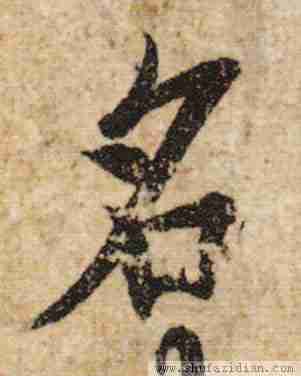 名
www.shufazidian.com